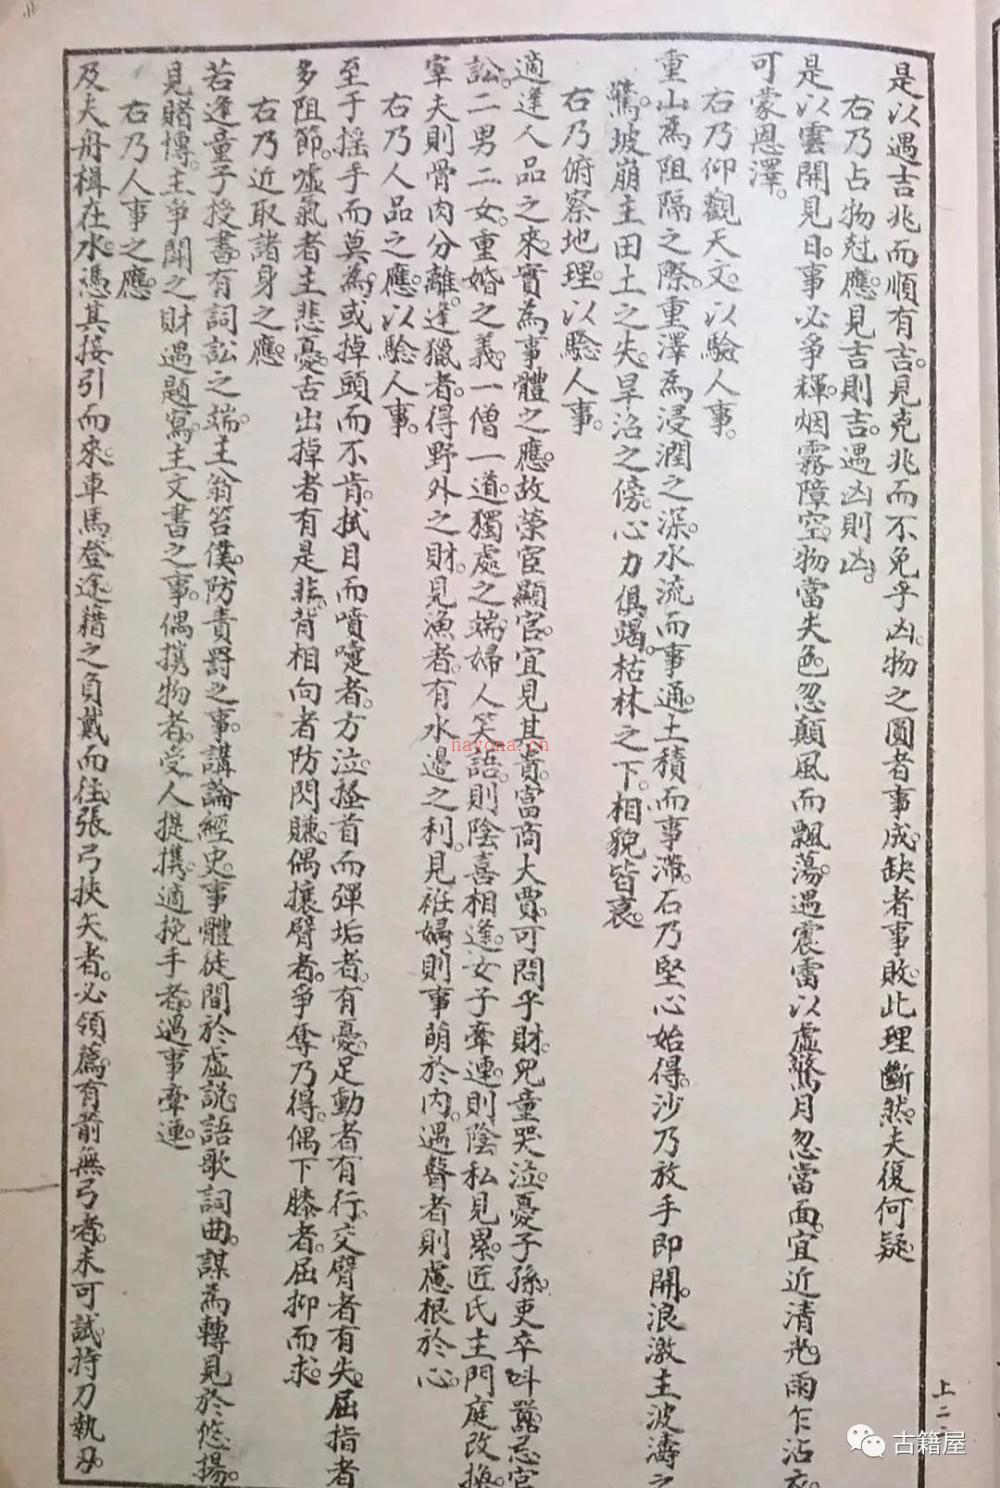 是以遇吉兆而順有吉。見克兆而不免乎凶。物之圓者事成。缺者事敗。此理斷然。夫復何疑。
右乃占物尅應。見吉則吉。遇凶則凶。
是以雲開見日。事必爭輝。烟霧障空。物當失色。忽顛風而飄蕩。遇震雷以虛驚。月忽當面。宜近清光。雨乍沾衣。
可蒙恩澤。
右乃仰觀天文。以驗人事。
重山為阻隔之際。重澤為浸潤之深。水流而事通。土積而事滯。石乃堅心始得。沙乃放手即開。浪激主波濤之
驚。坡崩主田土之失。旱沼之傍。心力俱竭。枯林之下。相貌皆衰。
右乃俯察地理。以驗人事。
適逢人品之來。實為事體之應。故榮宦顯官。宜見其貴。富商大賈。可問乎財。兒童哭泣。憂子孫。吏卒叫囂。忌官
訟。二男二女。重婚之義。一僧一道。獨處之端。婦人笑語。則陰喜相逢。女子牽連。則陰私見累。匠氏主門庭改換。
宰夫則骨肉分離。逢獵者。得野外之財。見漁者。有水邊之利。見姙婦則事萌於內。遇瞽者則慮根於心。
右乃人品之應。以驗人事。
至于搖手而莫為。或掉頭而不肯。拭目而噴嚏者。方泣。搔首而彈垢者。有憂。足動者有行。交臂者有失。屈指者
多阻節。噓氣者主悲憂。舌出掉者有是非。背相向者防閃賺。偶攘臂者。爭奪乃得。偶下膝者。屈抑而求。
右乃近取諸身之應。
若逢童子授書。有詞訟之端。主翁笞僕。防責罸之事。講論經史。事體徒間於虛說。語歌詞曲。謀為轉見於悠揚。
見賭博。主爭鬪之財。遇題寫。主文書之事。偶携物者。受人提携。適挽手者。遇事牽連。
右乃人事之應。
及夫舟楫在水。憑其接引而來。車馬登途。藉之負戴而往。張弓挾矢者。必領薦。有箭無弓者。未可試。持刀執刃。
上二
nayona.cn
古籍屋